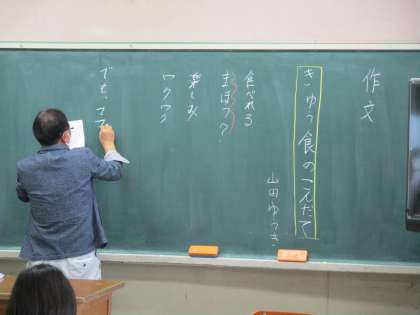 作文
きゅう食のこんだて
山田ゆうき
食べれる
まほう?
楽しみ
ワクワク
でも、